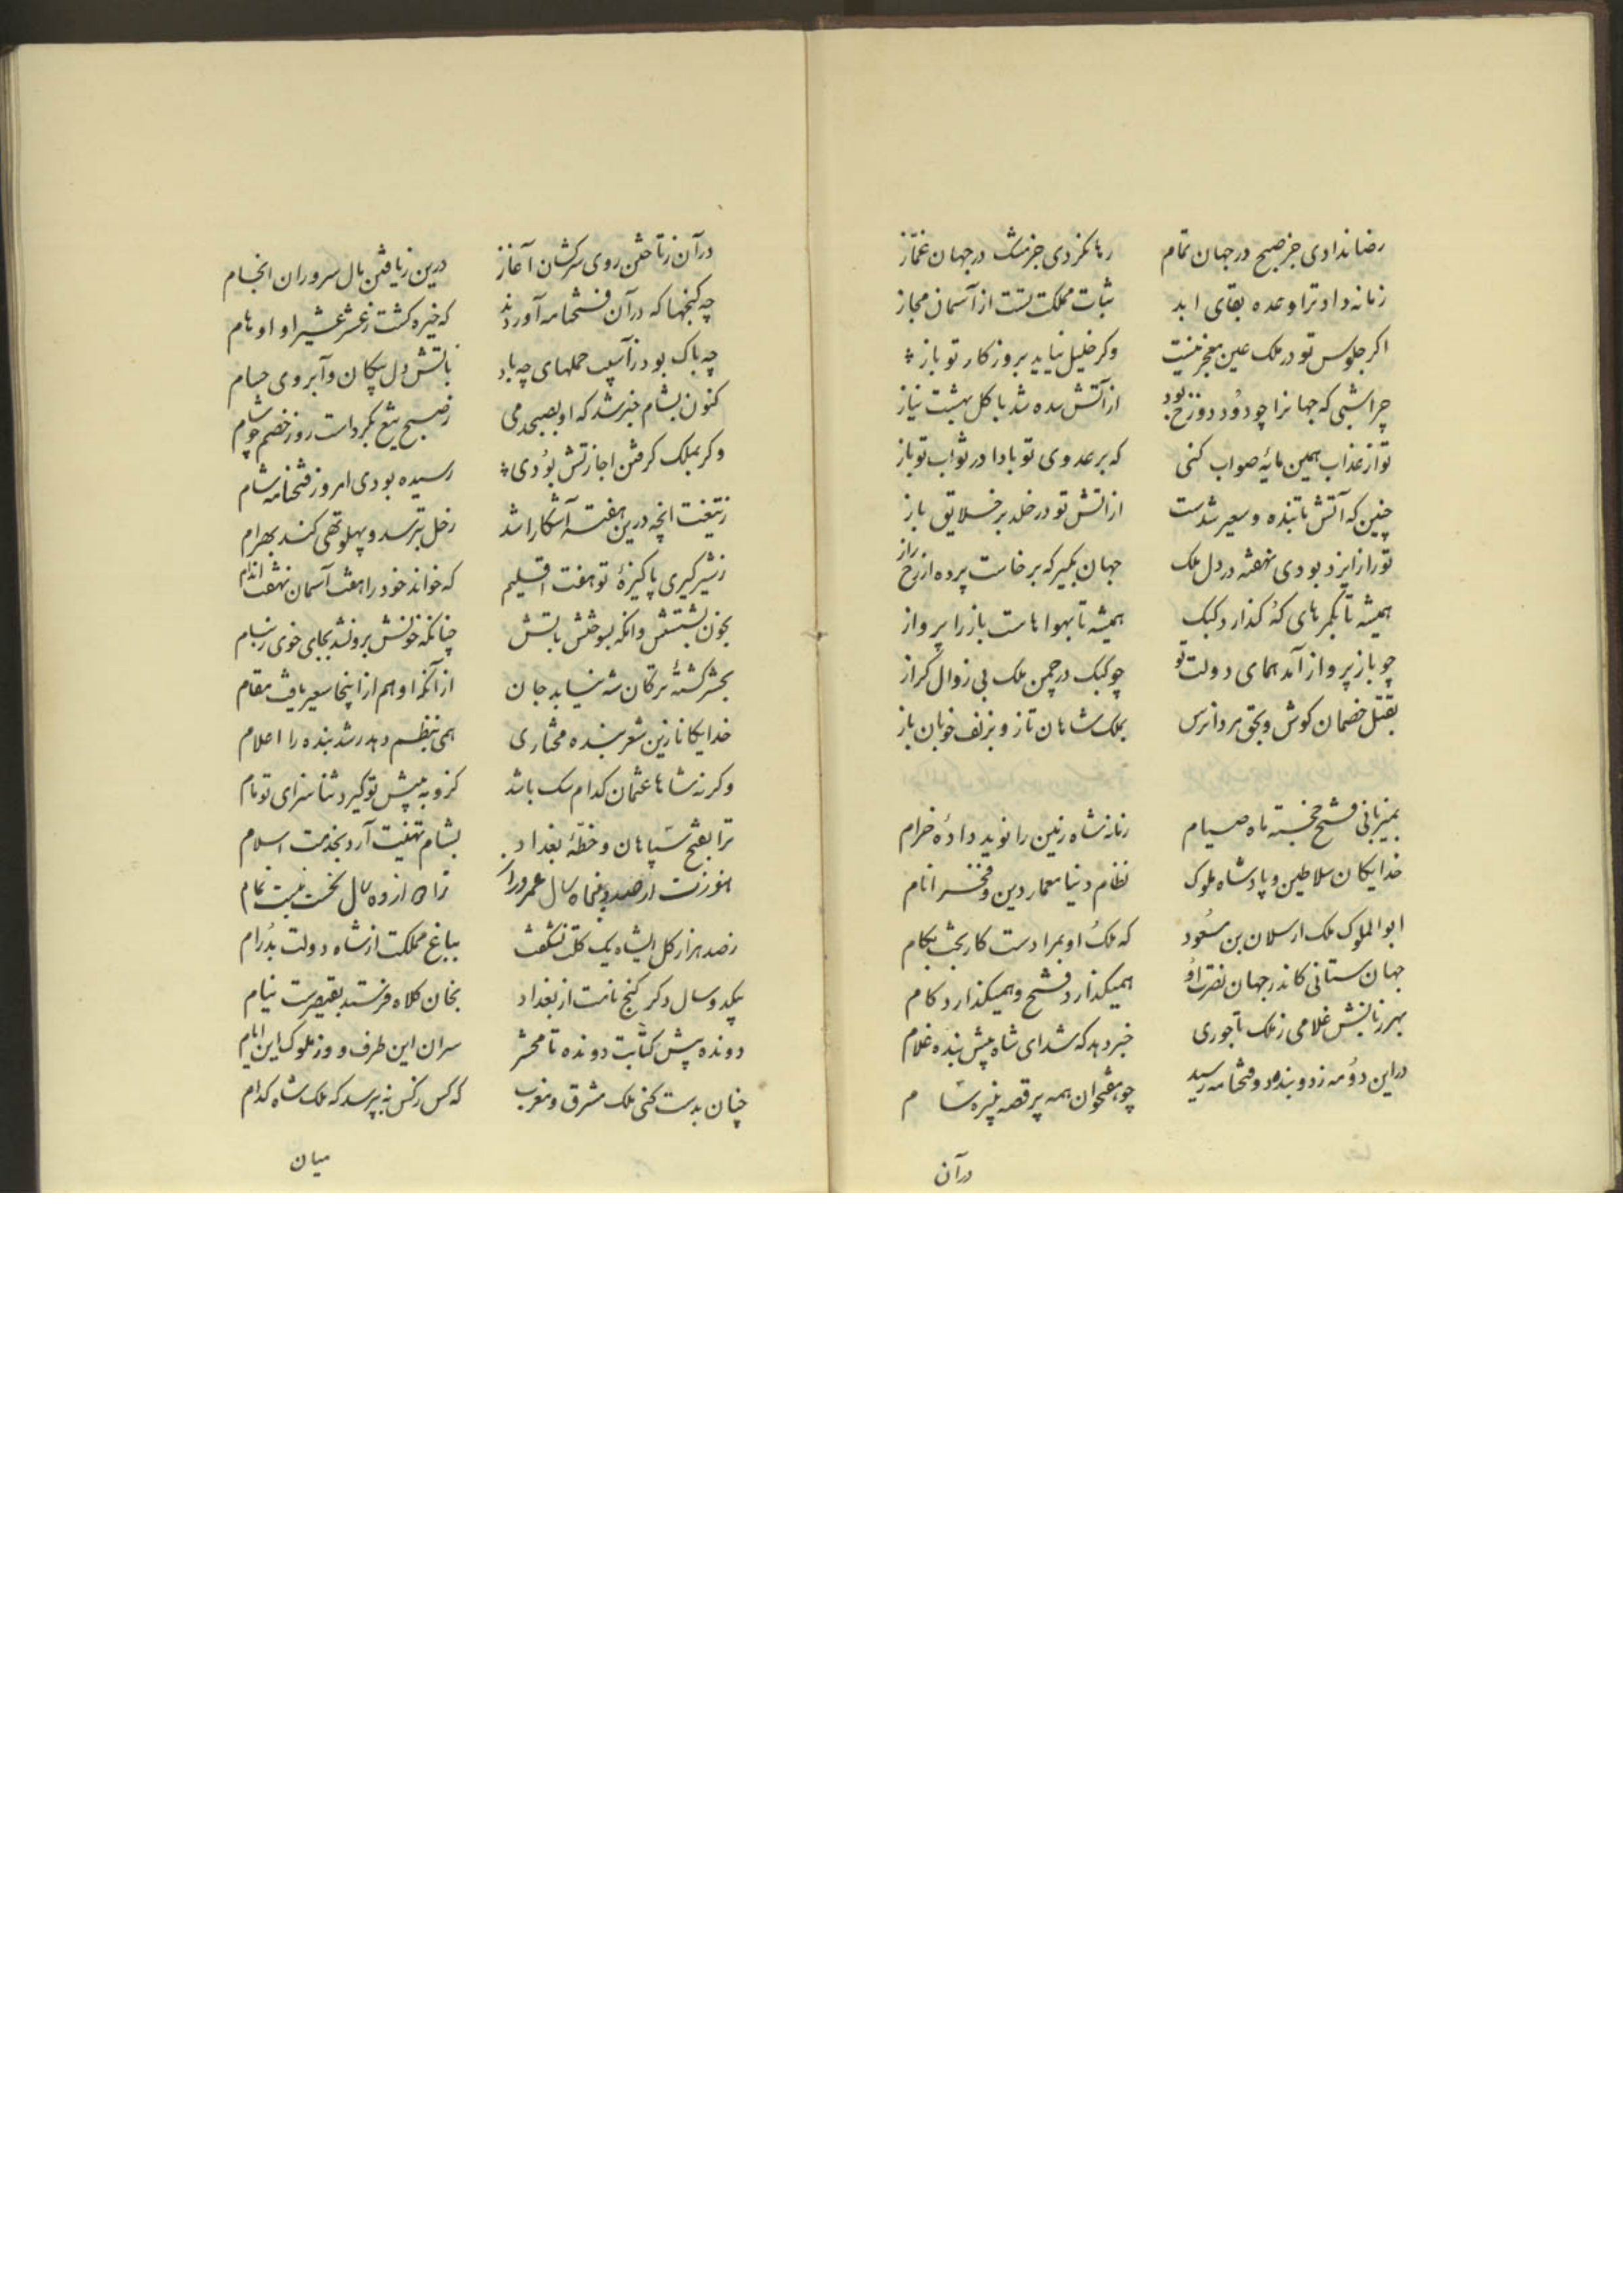 رضا ندادی جز صبح در جهان تمام رها نکردی جز مشک در جهان غمّاز
زمانه داد ترا وعده بقای ابد ثبات مملکت تست از آسمان مجاز
اکر جلوس تو در ملک عین معجز نیست وکر خلیل نیاید بروز کار تو باز
چرا شبی که جهانرا چو دُود دوزخ بود از آتش سده شد با کل بهشت نیاز
تو از عذاب همین مایهٔ صواب کنی که بر عدوی تو بادا در ثواب تو باز
چنین که آتش تابنده و سعیر شدست از اتش تو در خلد بر خلایق باز
تو راز ایزد بودی نهفته در دل ملک جهان بکیر که برخاست پرده از رخ راز
همیشه تا بکمرهای که کذارد کبک همیشه تا بهواهاست باز را پرواز
چو باز پرواز آمد همای دولت تو چو کبک در چمن ملک بی زوال کراز
بقتل خصمان کوش و بحق مردان رس بملک شاهان تاز و بزلف خوبان باز
بمیزبانی فتح خجسته ماه صیام زمانه شاه زمین را نوید داده خرام
خدایکان سلاطین و پادشاه ملوک نظام دنیا معمار دین و فخر انام
ابو الملوک ملک ارسلان بن مسعُود که ملک او بمرادست کار بخت بکام
جهان ستانی کاندر جهان نصرت اوُ همیکذارد فتح و همیکذارد کام
بهر زبانش غلامی ز ملک تاجوری خبر دهد که شد ای شاه پیش بنده غلام
در این دوُمه زد و بند و فتحنامه رسید چو هفتخوان همه پر قصه نبیره سام
درآن
درآن ز تاختن روی سرکشان آغاز درین ز یافتن بال سروران انجام
چه کنجها که در آن فتحنامه آوردند که خیره کشت ز عشر عشیر او اوهام
چه باک بود ز آسیب حملهای چه باد باتش دل پیکان و آبروی حسام
کنون بشام خبر شد که او بصبحدمی ز صبح تیغ بکرداست روز خصم چو شام
وکر بملک کرفتن اجازتش بوُدی رسیده بودی امروز فتحنامه شام
ز تیغت انچه درین هفته آشکارا شد زحل بترسد و پهلو تهی کند بهرام
ز شیر کیری پاکیزهٔ تو هفت اقلیم که خواند خود را هفت آسمان نهفت اندام
بخون بشستش وانکه بسوختش باتش چنانکه خونش برون شد بجای خوی ز مسام
بحشر کشتهٔ ترکان شه نیابد جان از آنکه او هم از اینجا سعیر یافت مقام
خدایکانا زین شعر بنده مختاری همی بنظم دهد رشد بنده را اعلام
وکرنه شاها عثمان کدام سک باشد کزو به پیش تو کیرد ثنا سزای تو نام
ترا بفتح سپاهان و خطّهٔ بغداد بشام تهنیت آرد بخدمت اسلام
هنوزت از صد و پنجاه سال عمر دراز ترا از ده سال نخست نیست تمام
ز صد هزار کل ایشاه یک کلت نشکفت بباغ مملکت از شاه دولت بدُرام
بیکدوسال دکر کنج نامت از بغداد بخان کلاه فرستد بقیصرت نیام
دونده پیش کتابت دونده تا محشر سران این طرف و وز ملوک این ایام
چنان بدست کنی ملک مشرق و مغرب که کس ز کس نه پرسد که ملک شاه کدام
میان